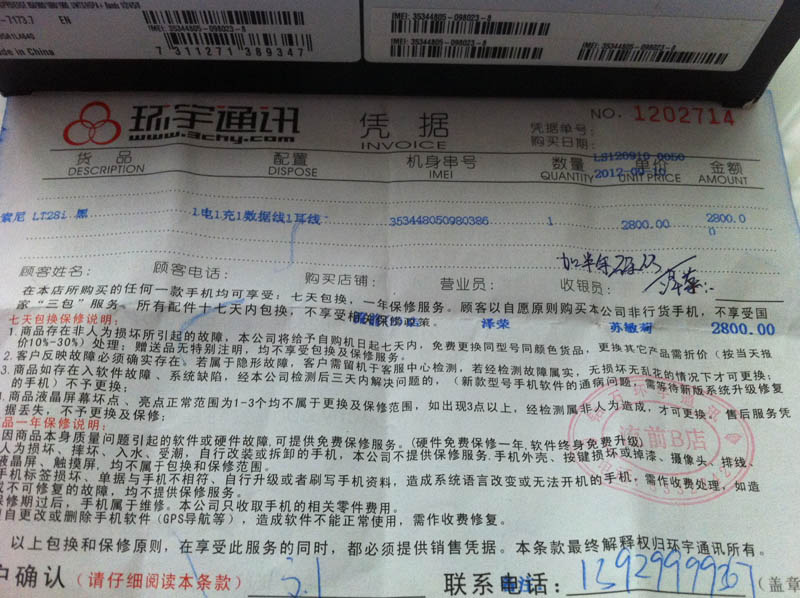 -7173.7 EN
Made in China
7 311271 389347
IMEI: 35344805-098023-8
IMEI: 35344805-098023-8
IMEI: 35344805-098023-8
环宇通讯
www.3chy.com
凭据
INVOICE
NO. 1202714
凭据单号:
购买日期:
LS120910 0050
货品 配置 机身串号 数量 单价 金额
DESCRIPTION DISPOSE IMEI QUANTITY UNIT PRICE AMOUNT
索尼 LT28i 黑 1电1充1数据线1耳线 353448050980386 1 2800.00 2800.0
0
顾客姓名: 顾客电话: 购买店铺: 营业员: 收银员:
在本店所购买的任何一款手机均可享受:七天包换,一年保修服务。顾客以自愿原则购买本公司非行货手机,不享受国
家“三包”服务。所有配件十七天内包换,不享受
泽荣 苏敏荷 2800.00
七天包换保修说明:
1.商品存在非人为损坏所引起的故障,本公司将给予自购机日起七天内,免费更换同型号同颜色货品,更换其它产品需折价(按当天报
价10%-30%)处理;赠送品无特别注明,均不享受包换及保修服务。
2.客户反映故障必须确实存在、若属于隐形故障,客户需留机于客服中心检测,若经检测故障属实,无损坏无乱花的情况下才可更换;
3.商品如存在入软件故障、系统缺陷,经本公司检测后三天内解决问题的,(新款型号手机软件的通病问题,需等待新版系统升级修复
的手机)不予更换;
商品液晶屏幕坏点、亮点正常范围为1-3个均不属于更换及保修范围,如出现3点以上,经检测属非人为造成,才可更换,售后服务凭
据丢失,不予更换及保修;
品一年保修说明:
因商品本身质量问题引起的软件或硬件故障,可提供免费保修服务。(硬件免费保修一年,软件终身免费升级)
人为损坏、摔坏、入水、受潮,自行改装或拆卸的手机,本公司不提供保修服务.手机外壳、按键损坏或掉漆、摄像头、排线、
液晶屏、触摸屏,均不属于包换和保修范围。
手机标签损坏、单据与手机不相符、自行升级或者刷写手机资料,造成系统语言改变或无法开机的手机,需作收费处理,如造
成不可修复的故障,均不提供保修服务。
保修期过后,手机属于维修。本公司只收取手机的相关零件费用。
自更改或删除手机软件(GPS导航等),造成软件不能正常使用,需作收费修复。
流前B店
以上包换和保修原则,在享受此服务的同时,都必须提供销售凭据。本条款最终解释权归环宇通讯所有。
户确认(请仔细阅读本条款) 联系电话: (盖章